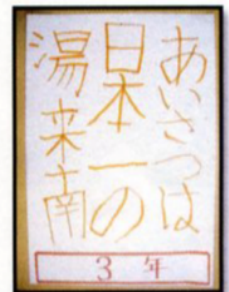 あいさつは
日本一の
湯来南
3年